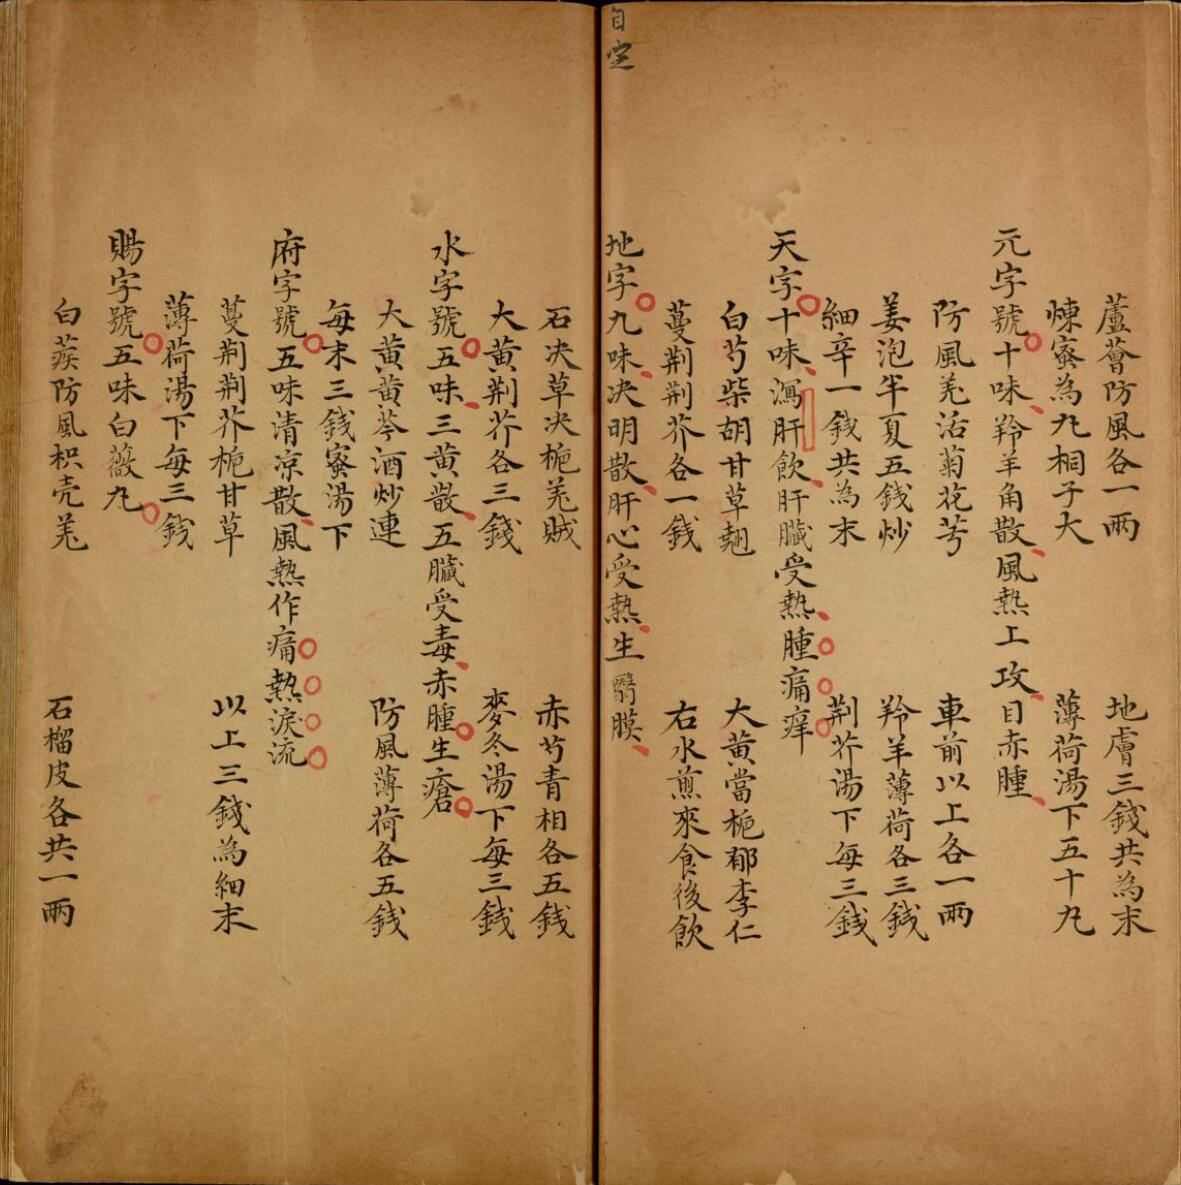 蘆薈防風各一兩　地膚三錢共為末
煉蜜為丸桐子大　薄荷湯下五十丸
元字號十味羚羊角散風熱上攻目赤腫
防風羌活菊花芎　車前以上各一兩
姜泡半夏五錢炒　羚羊薄荷各三錢
細辛一錢共為末　荆芥湯下每三錢
天字十味瀉肝飲肝臟受熱腫痛痒
白芍柴胡甘草翹　大黃當梔郁李仁
蔓荆荆芥各一錢　右水煎來食後飲
地字九味决明散肝心受熱生翳膜
自定
石决草决梔羌賊　赤芍青相各五錢
大黃荆芥各三錢　麥冬湯下每三錢
水字號五味三黃散五臟受毒赤腫生瘡
大黃黃芩酒炒連　防風薄荷各五錢
每末三錢蜜湯下
府字號五味清凉散風熱作痛熱淚流
蔓荆荆芥梔甘草　以上三錢為細末
薄荷湯下每三錢
賜字號五味白薇丸
白蒺防風枳壳羌　石榴皮各共一兩